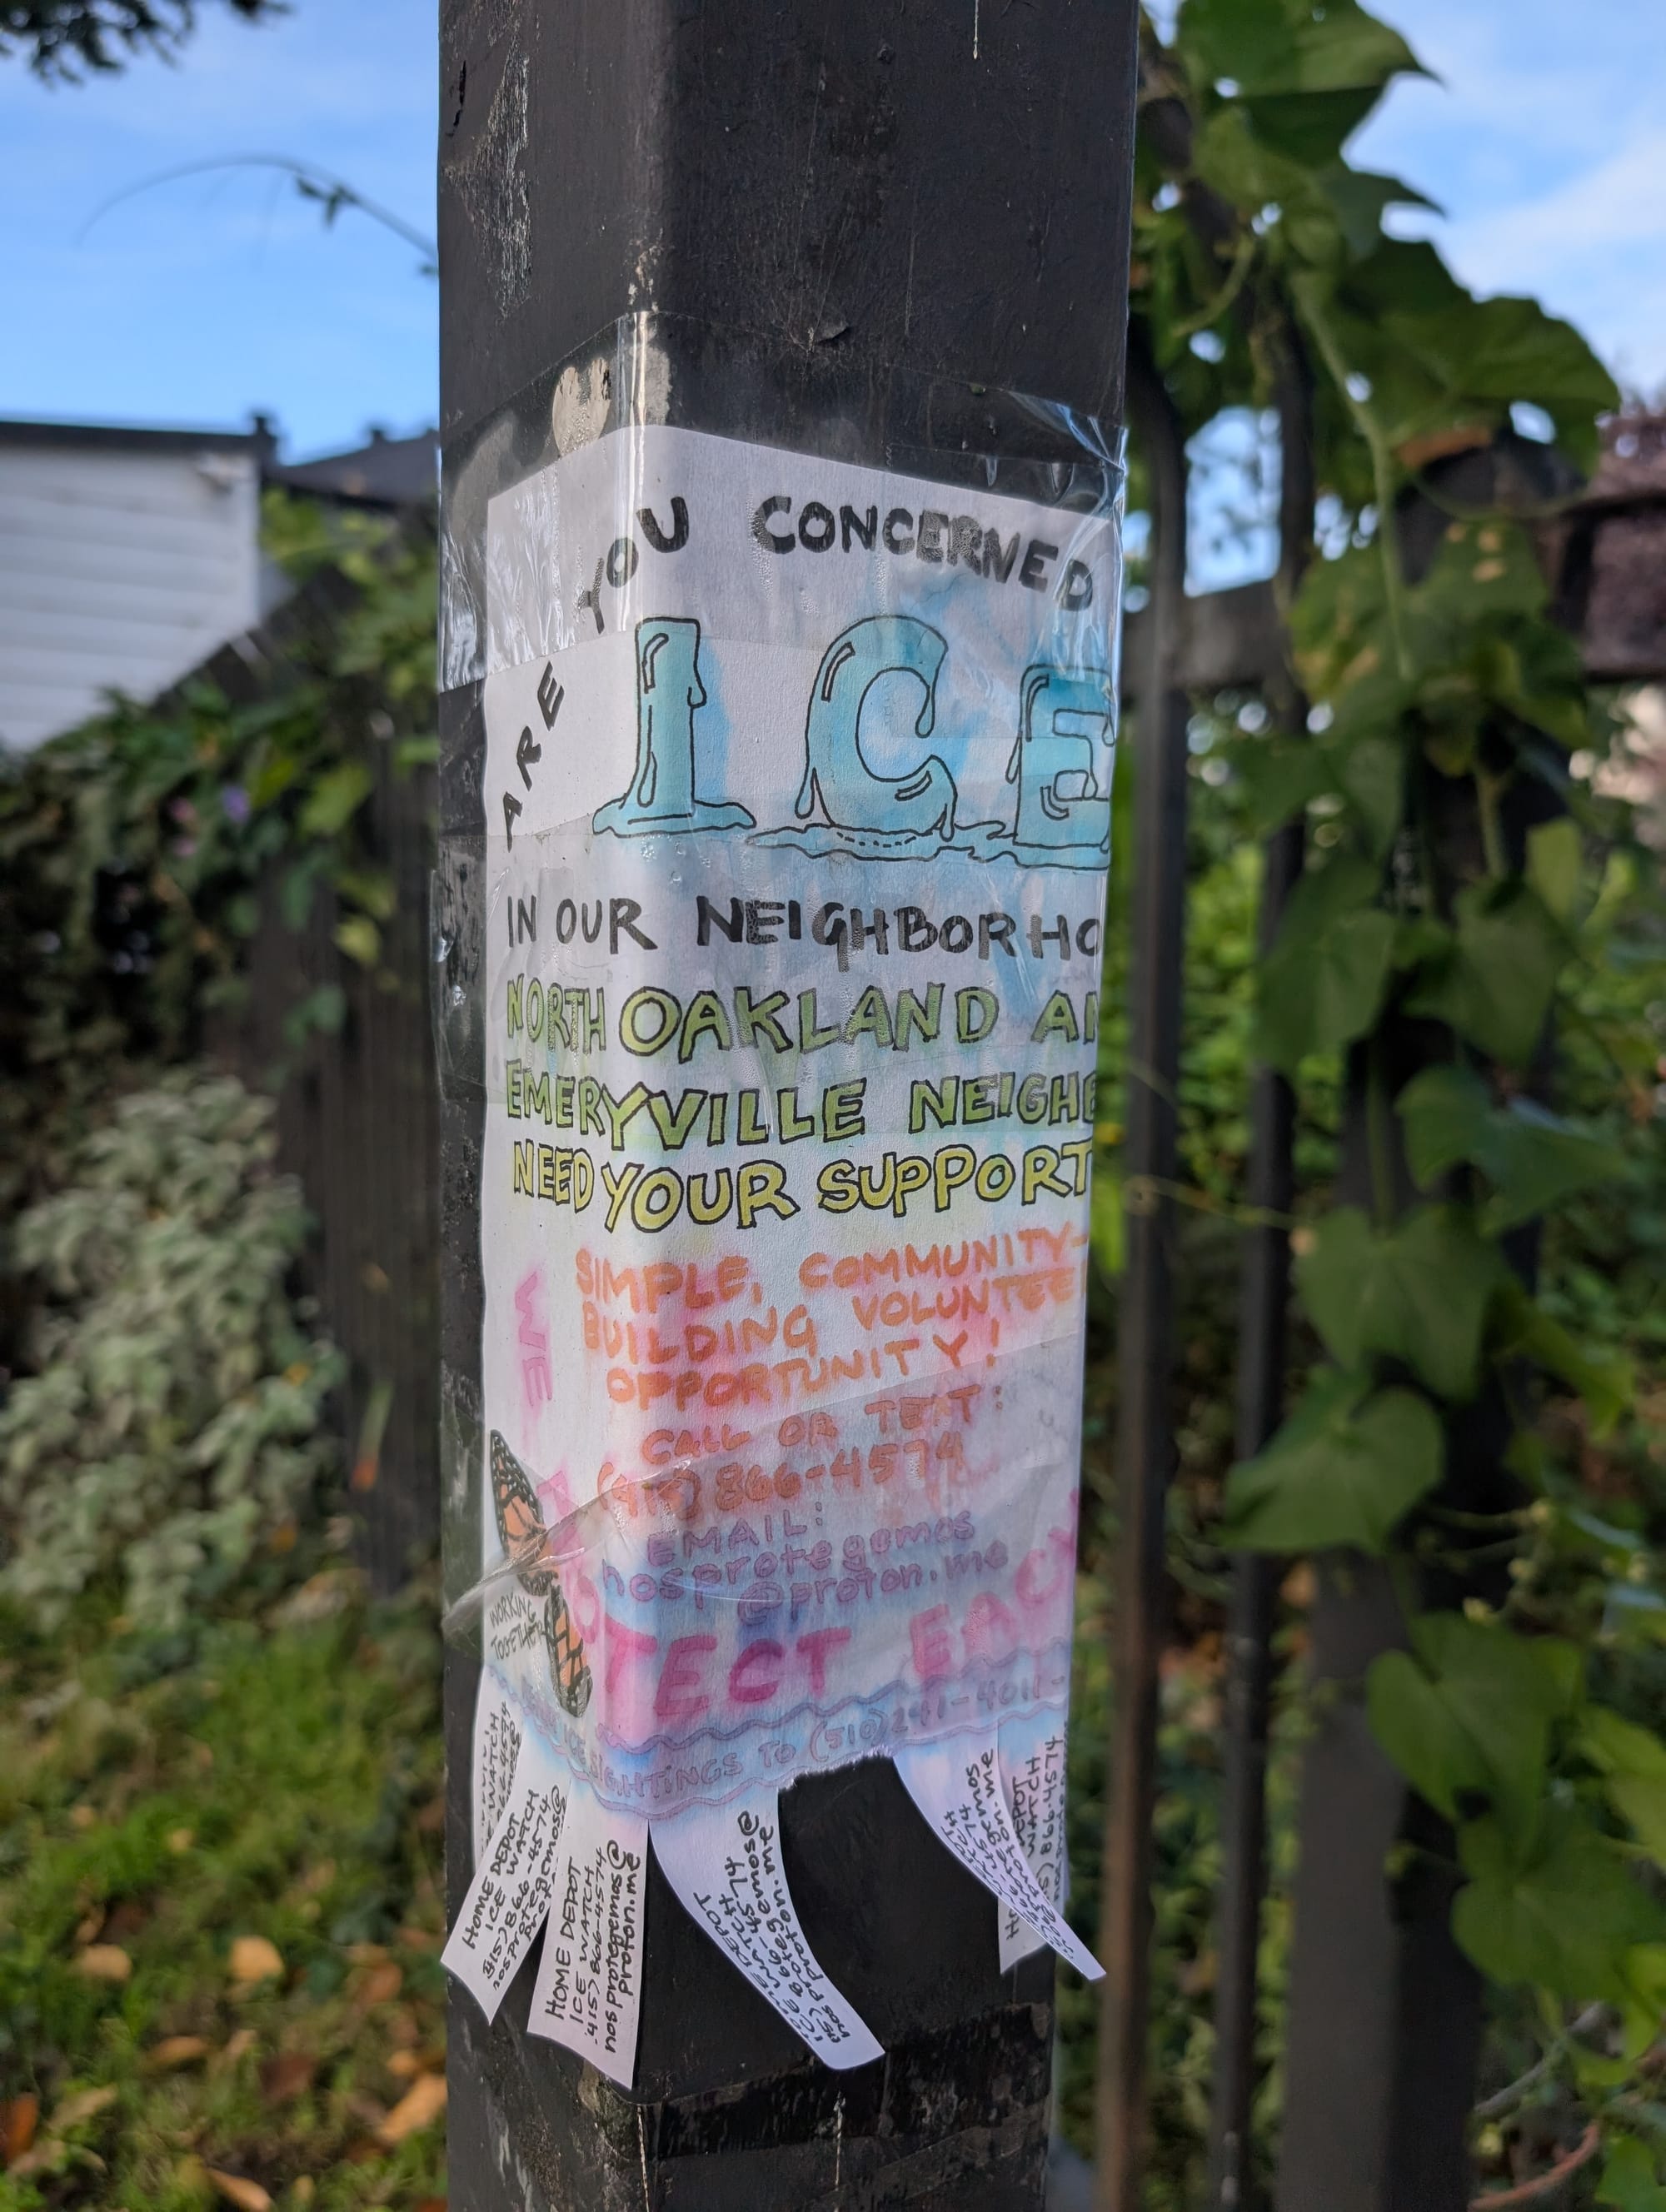 ARE YOU CONCERNED
ICE
IN OUR NEIGHBORHO
NORTH OAKLAND AN
EMERYVILLE NEIGHB
NEED YOUR SUPPORT
SIMPLE, COMMUNITY-
BUILDING VOLUNTEE
OPPORTUNITY!
CALL OR TEXT:
(415) 866-4574
EMAIL:
nosprotegemos
@proton.me
WE
PROTECT EACH
WORKING
TOGETHER
SIGHTINGS TO (510) 241-4011
WATCH
HOME DEPOT
ICE WATCH
(415) 866-4574
nosprotegemos@
HOME DEPOT
ICE WATCH
(415) 866-4574
nosprotegemos@
proton.me
nosprotegemos@
proton.me
DEPOT
WATCH
866-4574